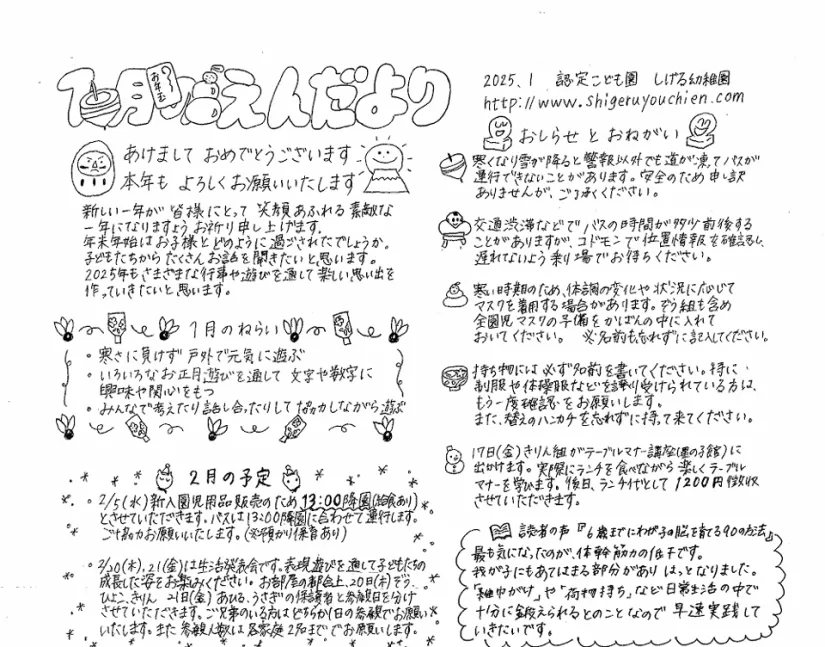 1月のえんだより
お年玉
2025.1 認定こども園 しげる幼稚園
http://www.shigeruyouchien.com
あけまして おめでとうございます
本年も よろしくお願いいたします
新しい一年が 皆様にとって 笑顔あふれる 素敵な
一年になりますよう お祈り申し上げます。
年末年始はお子様とどのように過ごされたでしょうか。
子どもたちから たくさん お話を聞きたいと思います。
2025年もさまざまな行事や遊びを通して楽しい思い出を
作っていきたいと思います。
1月のねらい
・寒さに負けず 戸外で元気に遊ぶ
・いろいろなお正月遊びを通して 文字や数字に
興味や関心をもつ
・みんなで考えたり話し合ったりして 協力しながら遊ぶ
2月の予定
・2/5(水)新入園児用品販売のため 13:00降園(給食あり)
とさせていただきます。バスは13:00降園に合わせて運行します。
ご協力お願いいたします。(※預かり保育あり)
・2/20(木)、21(金)は生活発表会です。表現遊びを通して子どもたちの
成長した姿をお楽しみください。お部屋の都合上、20日(木)ぞう、
ひよこ、きりん 21日(金)あひる、うさぎの保護者と参観日を分け
させていただきます。ご兄弟のいる方はどちらか1日の参観でお願い
いたします。また 参観人数は 各家庭 2名まででお願いします。
おしらせ と おねがい
寒くなり雪が降ると警報以外でも道が凍ってバスが
運行できないことがあります。安全のため 申し訳
ありませんが、ご了承ください。
交通渋滞などで バスの時間が多少前後する
ことがありますが、コドモンで位置情報を確認し、
遅れてないよう 乗り場でお待ちください。
寒い時期のため、体調の変化や 状況に応じて
マスクを着用する場合があります。ぞう組も含め
全園児 マスクの予備を かばんの中に入れて
おいてください。 ※名前も忘れずに記入してください。
持ち物には 必ず名前を書いてください。特に
制服や体操服などを譲り受けられている方は、
もう一度確認をお願いします。
また、替えのハンカチを忘れずに持って来てください。
17日(金)きりん組がテーブルマナー講座(星の子館)に
出かけます。実際にランチを食べながら 楽しくテーブル
マナーを学びます。後日、ランチ代として 1200円徴収
させていただきます。
読者の声『6歳までにわが子の脳を育てる90の方法』
最も気になったのが、体幹筋力の低下です。
我が子にもあてはまる部分があり はっとなりました。
「雑巾がけ」や「荷物持ち」など日常生活の中で
十分に鍛えられるとのことなので 早速実践して
いきたいです。